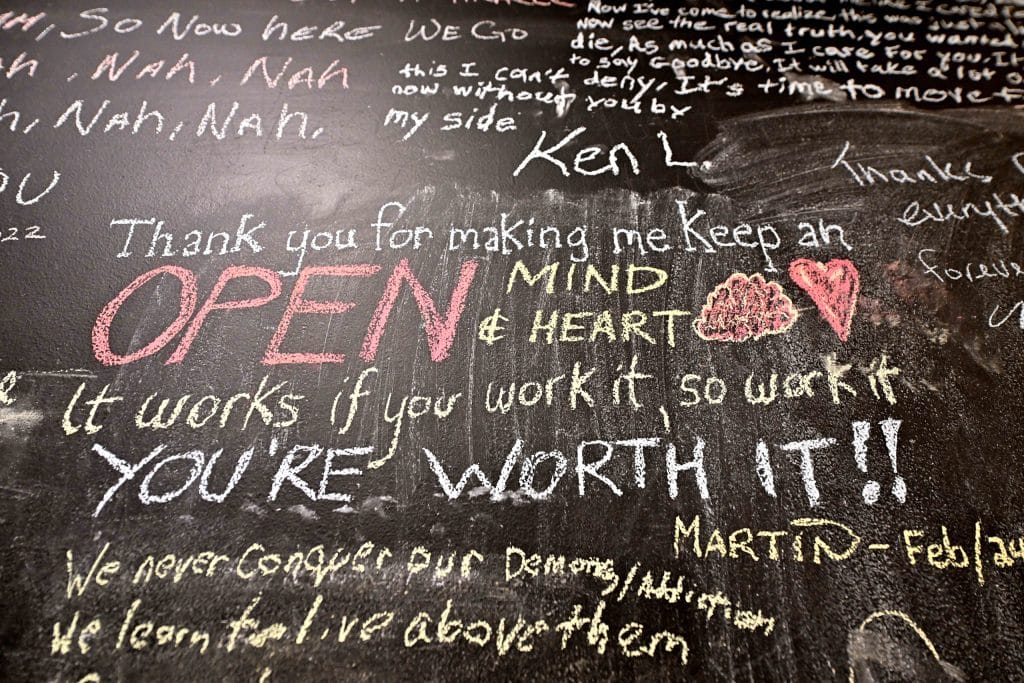 Ah, So Now here We Go
ah, Nah, Nah
h, Nah, Nah, Nah,
OU
22
Now I've come to realize this was just
Now see the real truth, you want
die, As much as I care for you, It
to say Goodbye, It will take a lot o
this I can't deny, It's time to move f
now without you by
my side
Ken L.
Thanks
everyth
foreve
Thank you for making me Keep an
OPEN MIND
& HEART
It works if you work it, so work it
YOU'RE WORTH IT!!
MARTIN - Feb/
We never Conquer our Demons/Addictions
We learn to live above them